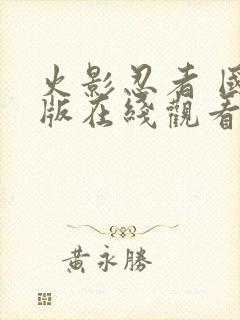 火影忍者 國
版在綫觀看
黃永勝